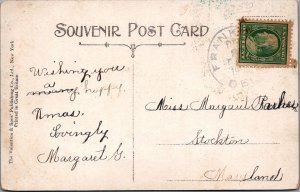 SOUVENIR POST CARD
The Valentine & Sons' Publishing Co., Ltd., New York
Printed in Great Britain
FRANK
DE
Wishing you
a many happy
Xmas.
Lovingly
Margaret G.
Miss Margaret Parker
Stockton
Maryland